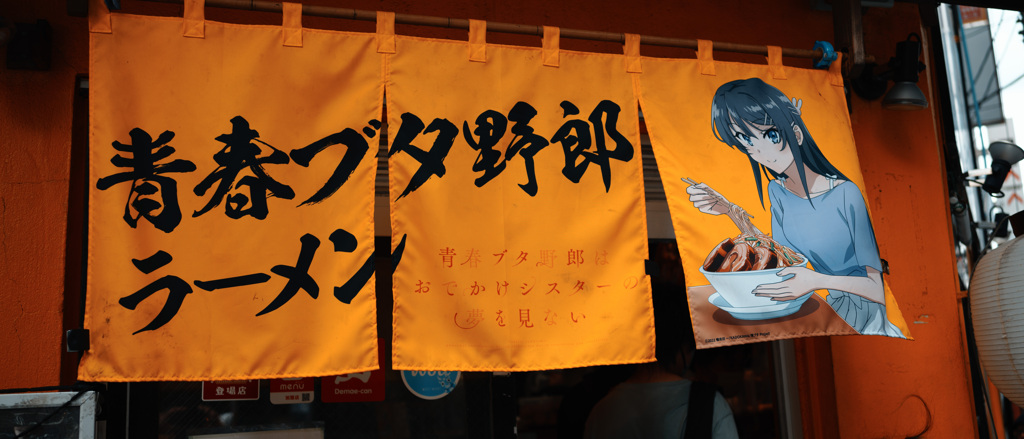 青春ブタ野郎
ラーメン
青春ブタ野郎は
おでかけシスターの
夢を見ない
登場店
menu
Demae-can